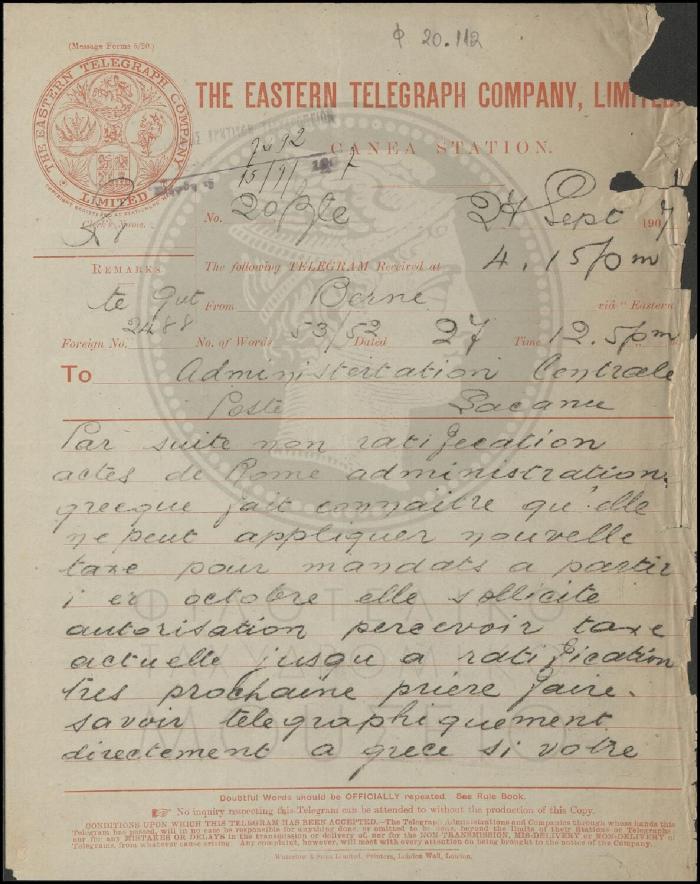 Φ 20.112
(Message Forms 5/20.)
THE EASTERN TELEGRAPH COMPANY, LIMITED.
THE EASTERN TELEGRAPH COMPANY
LIMITED
CANEA STATION.
7292
15/9/ 1907
No. 20 Ble 27 Sept 1907
Clerk's Name.
REMARKS
The following TELEGRAM Received at 4.15 pm
te qut From Berne via "Eastern
Foreign No. 2488 No. of Words 53/52 Dated 27 Time 12.5 pm
To Administertation Centrale
Poste Lacanee
Par suite non ratification
actes de Rome administration
grecque fait connaitre qu'elle
ne peut appliquer nouvelle
taxe pour mandats a partir
1 er octobre elle sollicite
autorisation percevoir taxe
actuelle jusqu a ratification
tres prochaine priere faire
savoir telegraphiquement
directement a grece si votre
ΦΙΛΟΤΕΛΙΚΟ
ΤΑΧΥΔΡΟΜΙΚΟ
ΜΟΥΣΕΙΟ
Doubtful Words should be OFFICIALLY repeated. See Rule Book.
☞ No inquiry respecting this Telegram can be attended to without the production of this Copy.
CONDITIONS UPON WHICH THIS TELEGRAM HAS BEEN ACCEPTED.—The Telegraph Administrations and Companies through whose hands this
Telegram has passed, will in no case be responsible for anything done, or omitted to be done, beyond the limits of their Stations or Telegraphs;
nor for any MISTAKES OR DELAYS in the transmission or delivery of, nor for the NON-TRANSMISSION, MIS-DELIVERY or NON-DELIVERY of
Telegrams, from whatever cause arising. Any complaint, however, will meet with every attention on being brought to the notice of the Company.
Waterlow & Sons Limited, Printers, London Wall, London.